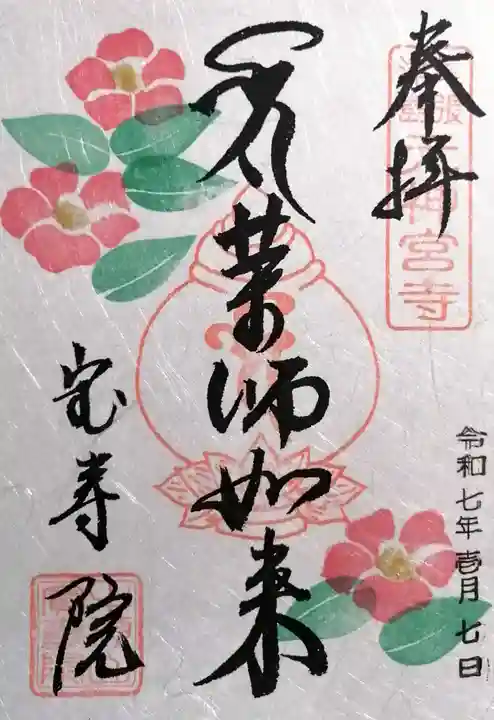 奉拝
薬師如来
宝寿院
令和七年壱月七日